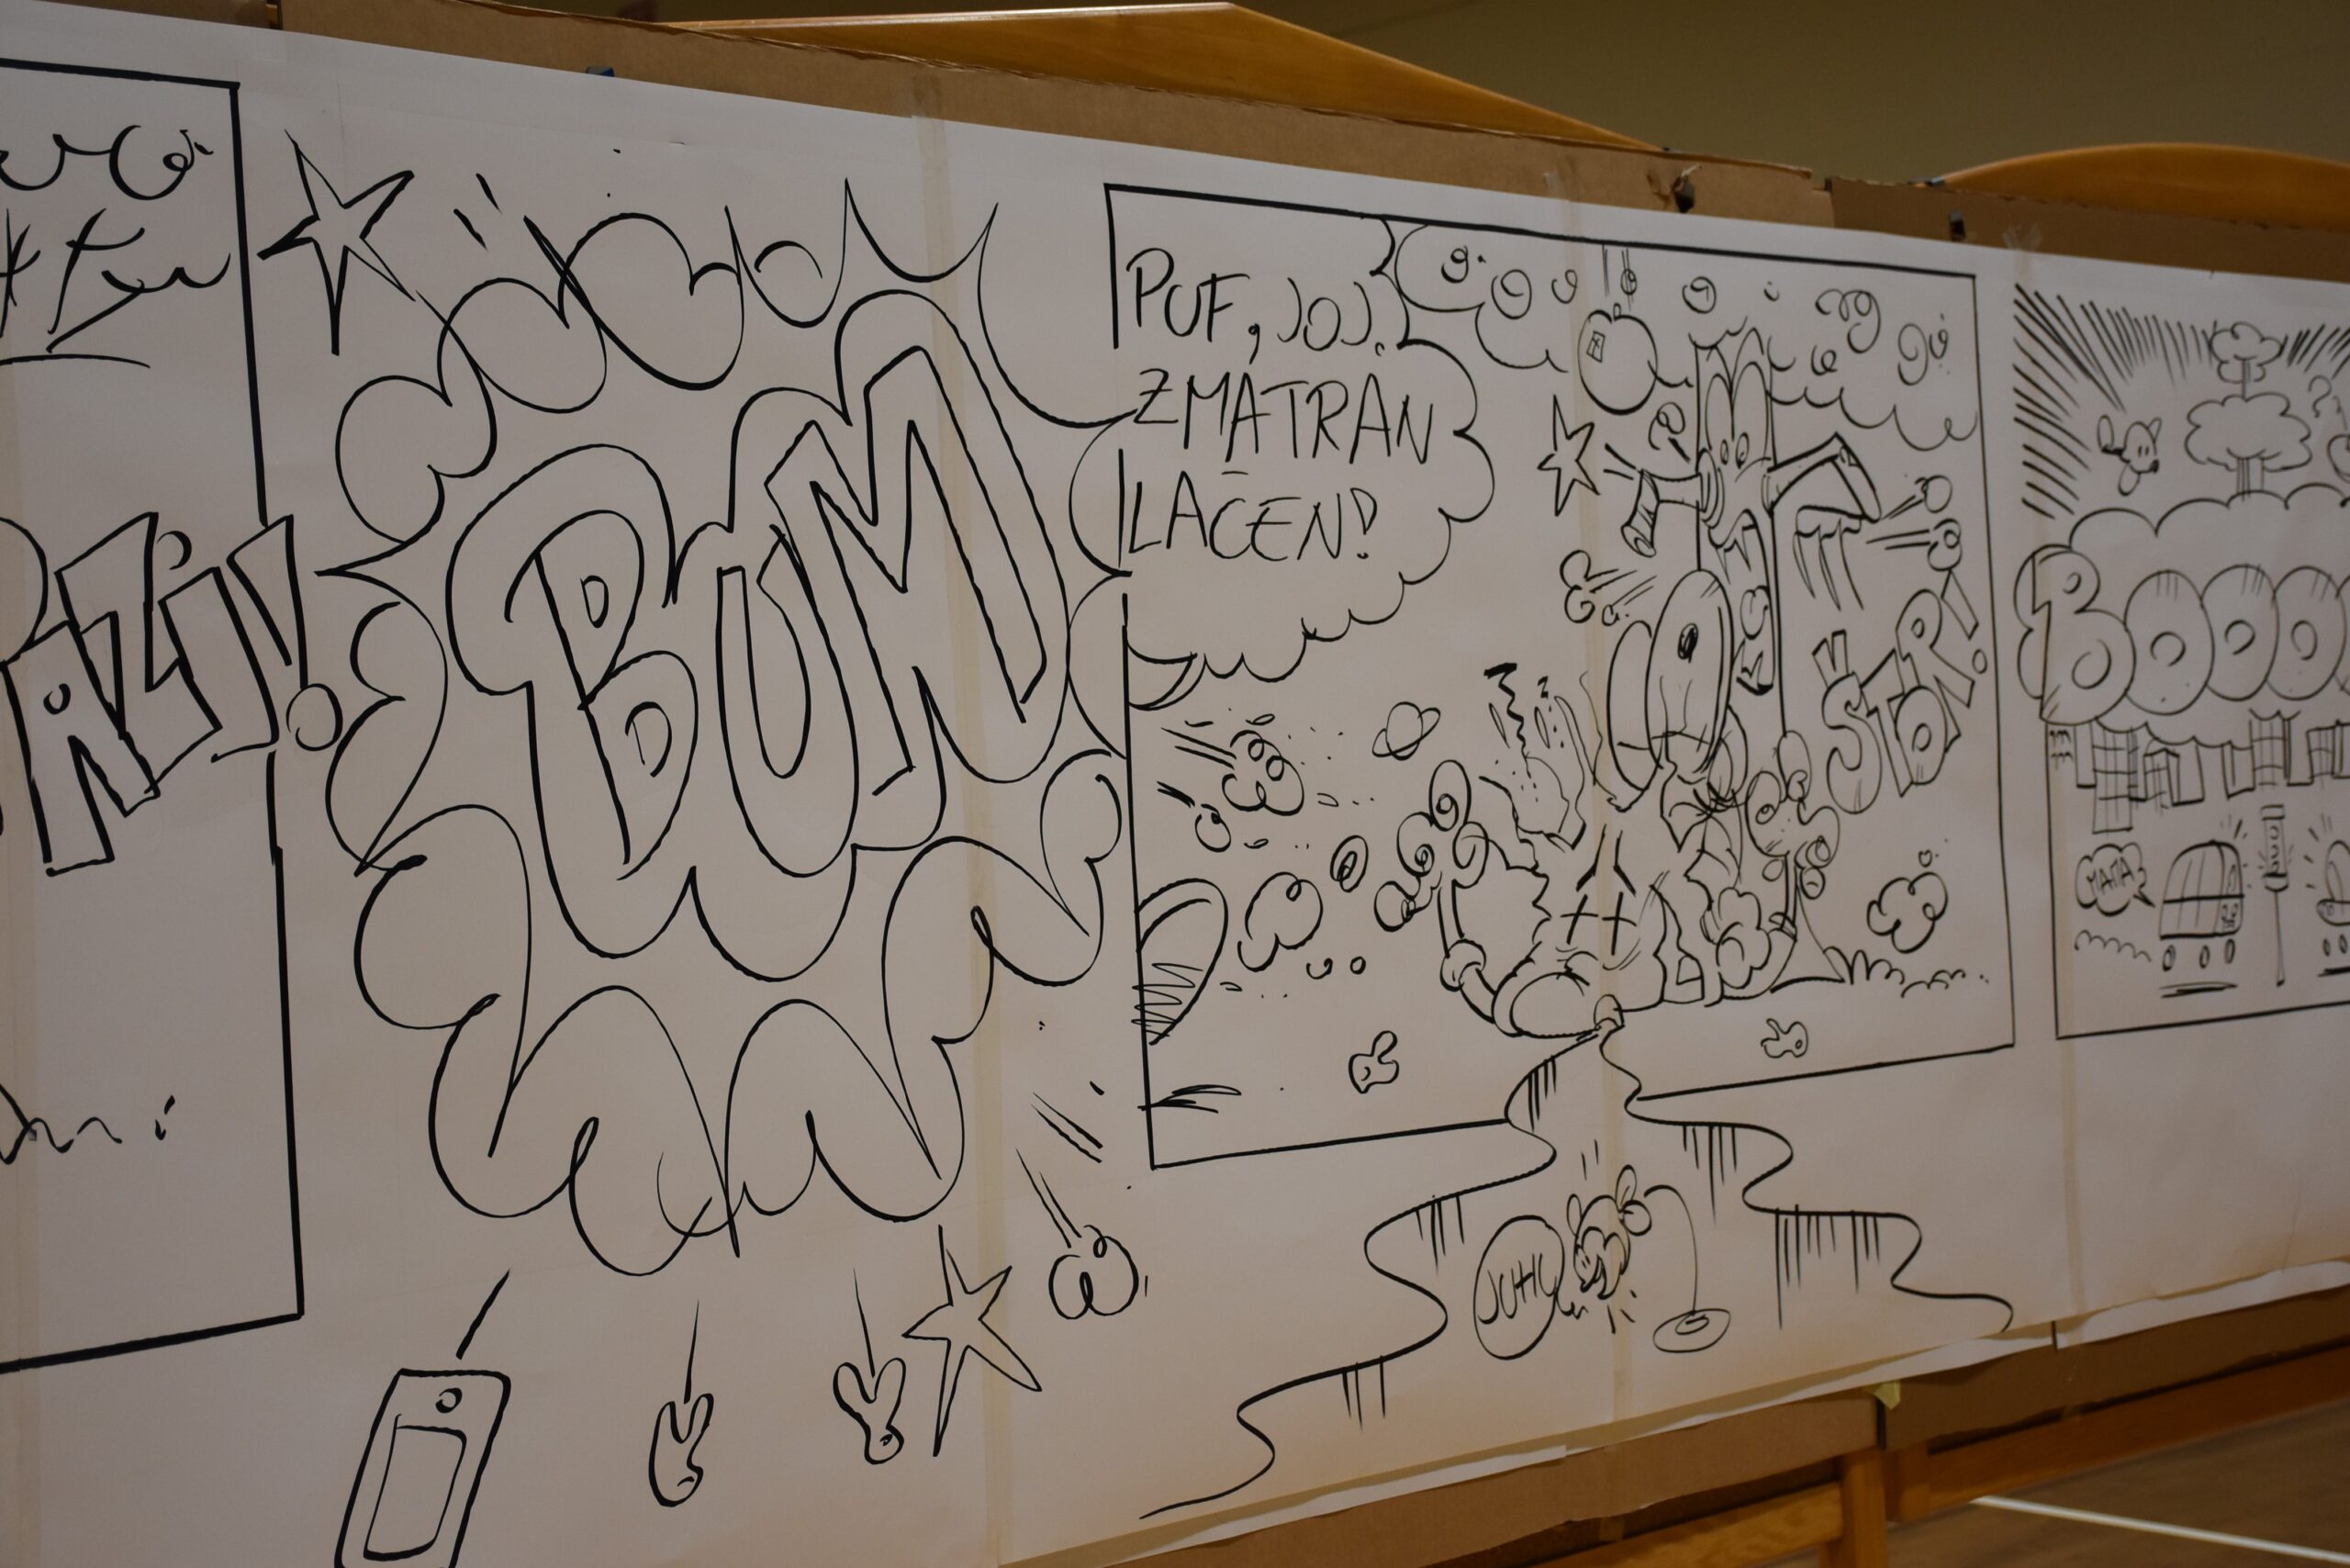 PAZI!
BUM
PUF, JOJ,
ZMATRAN
LAČEN!
ŠTOR!
JUHU
BOOO
MATR